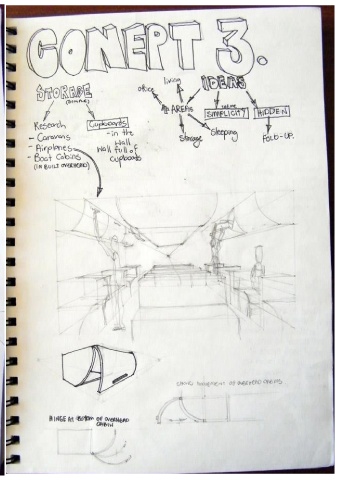 CONEPT 3.
STORAGE
Research
- Caravans
- Airplanes
- Boat Cabins
(IN BUILT OVERHEAD)
Cupboards
- in the
wall
wall full of
cupboards
IDEAS
office
living
AREAS
Storage
Sleeping
SIMPLICITY
HIDDEN
FOLD-UP.
HINGE AT BOTTOM OF OVERHEAD
CABIN
MOVEMENT OF OVERHEAD CABINS